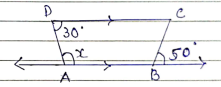 D C
30°
x 50°
A B